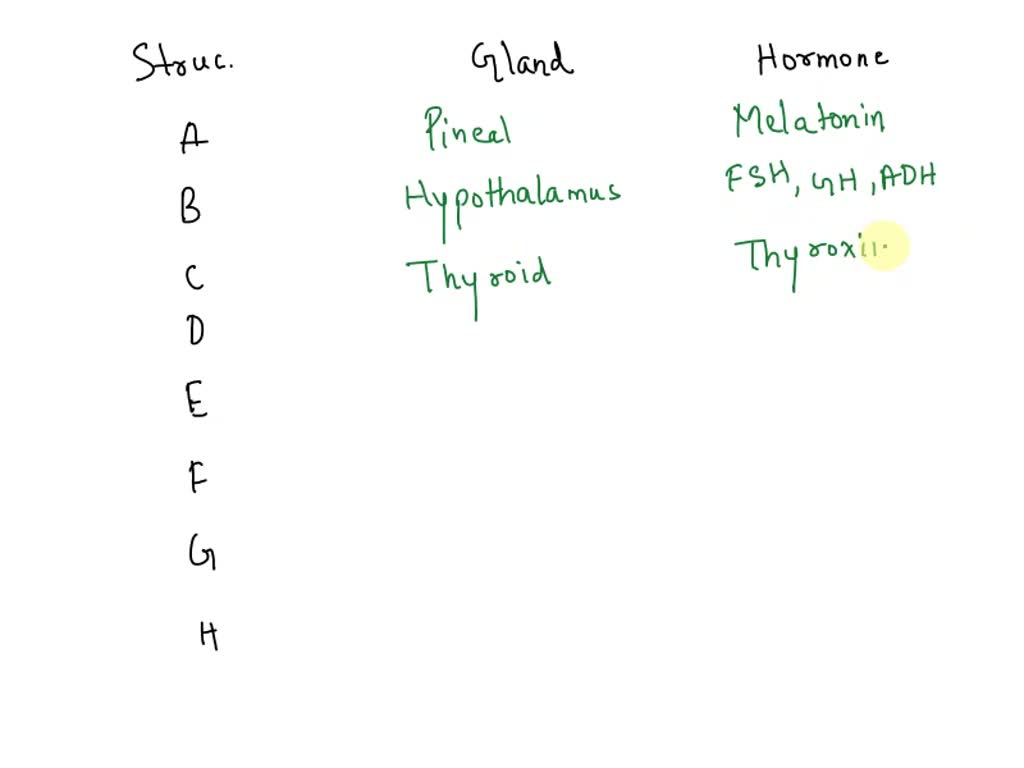 Struc. Gland Hormone
A Pineal Melatonin
B Hypothalamus FSH, GH, ADH
C Thyroid
D
E
F
G
H